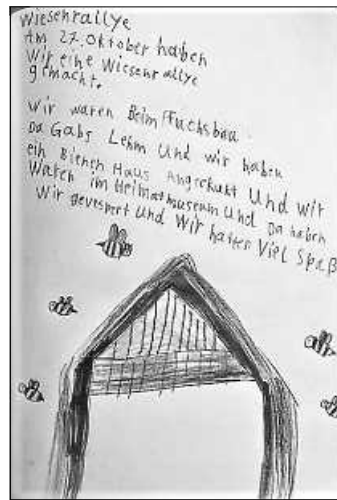 Wiesenrallye
Am 27. Oktober haben
Wir eine Wiesenrallye
gemacht.
Wir waren Beim Fuchsbau
Da Gabs Lehm Und wir haben
ein Bienen Haus Angeschukt Und wir
Waren im Heimatmuseum Und Da haben
Wir gevespert und Wir hatten Viel Spaß